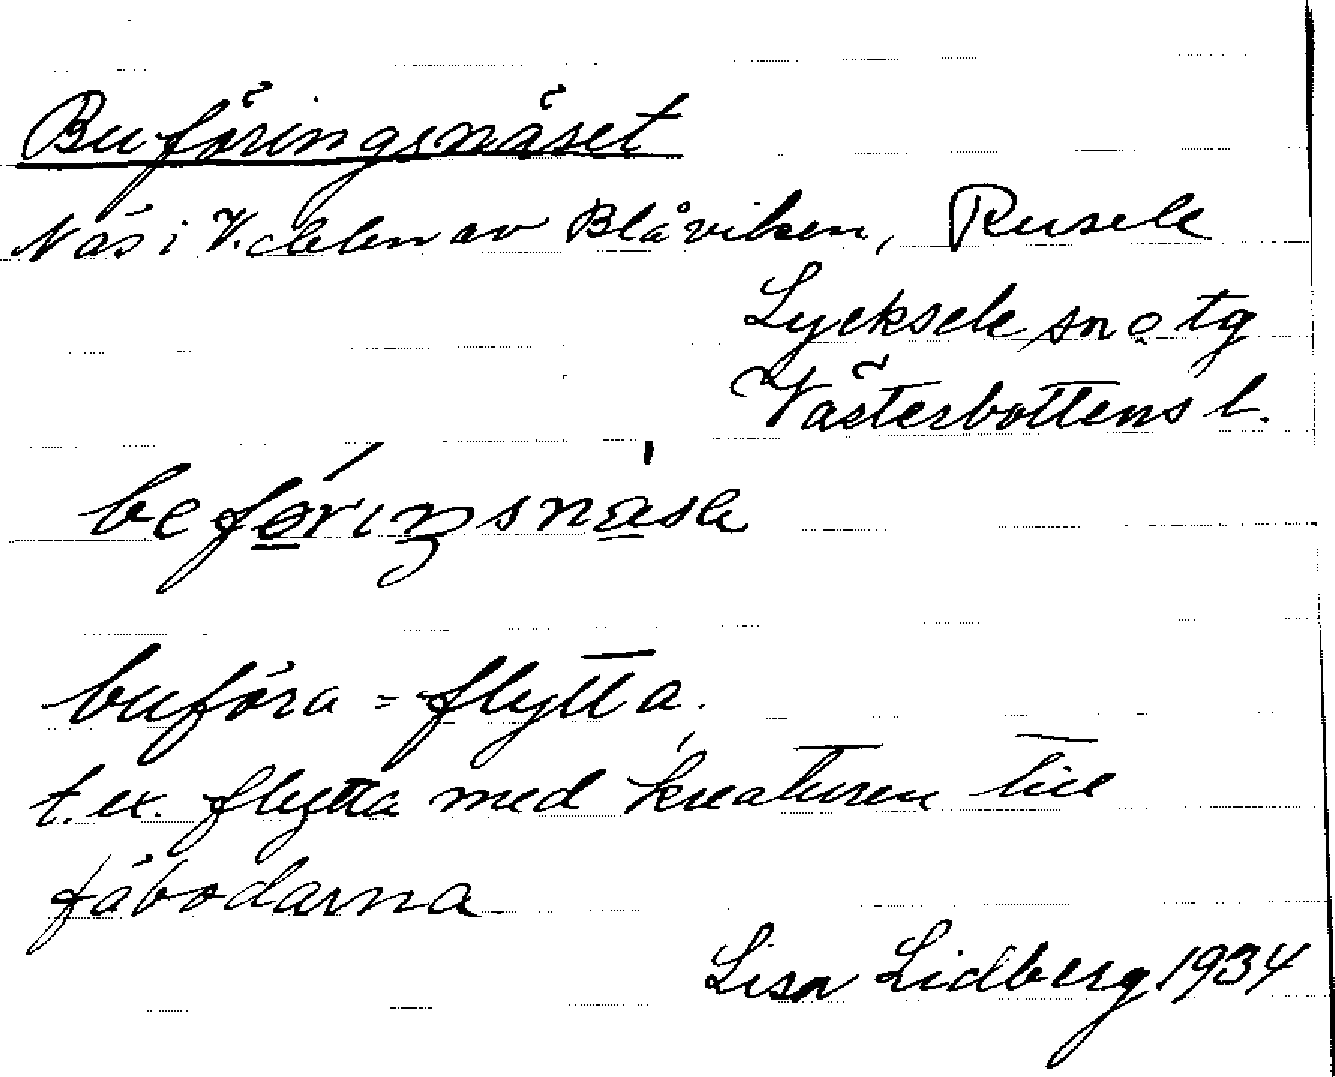 Buföringsnäset
Näs i V. delen av Blåviken, Rusele
Lycksele sn o tg
Västerbottens l.
buföra = flytta.
t. ex. flytta med kreaturen till
fäbodarna
Lisa Lidberg 1934